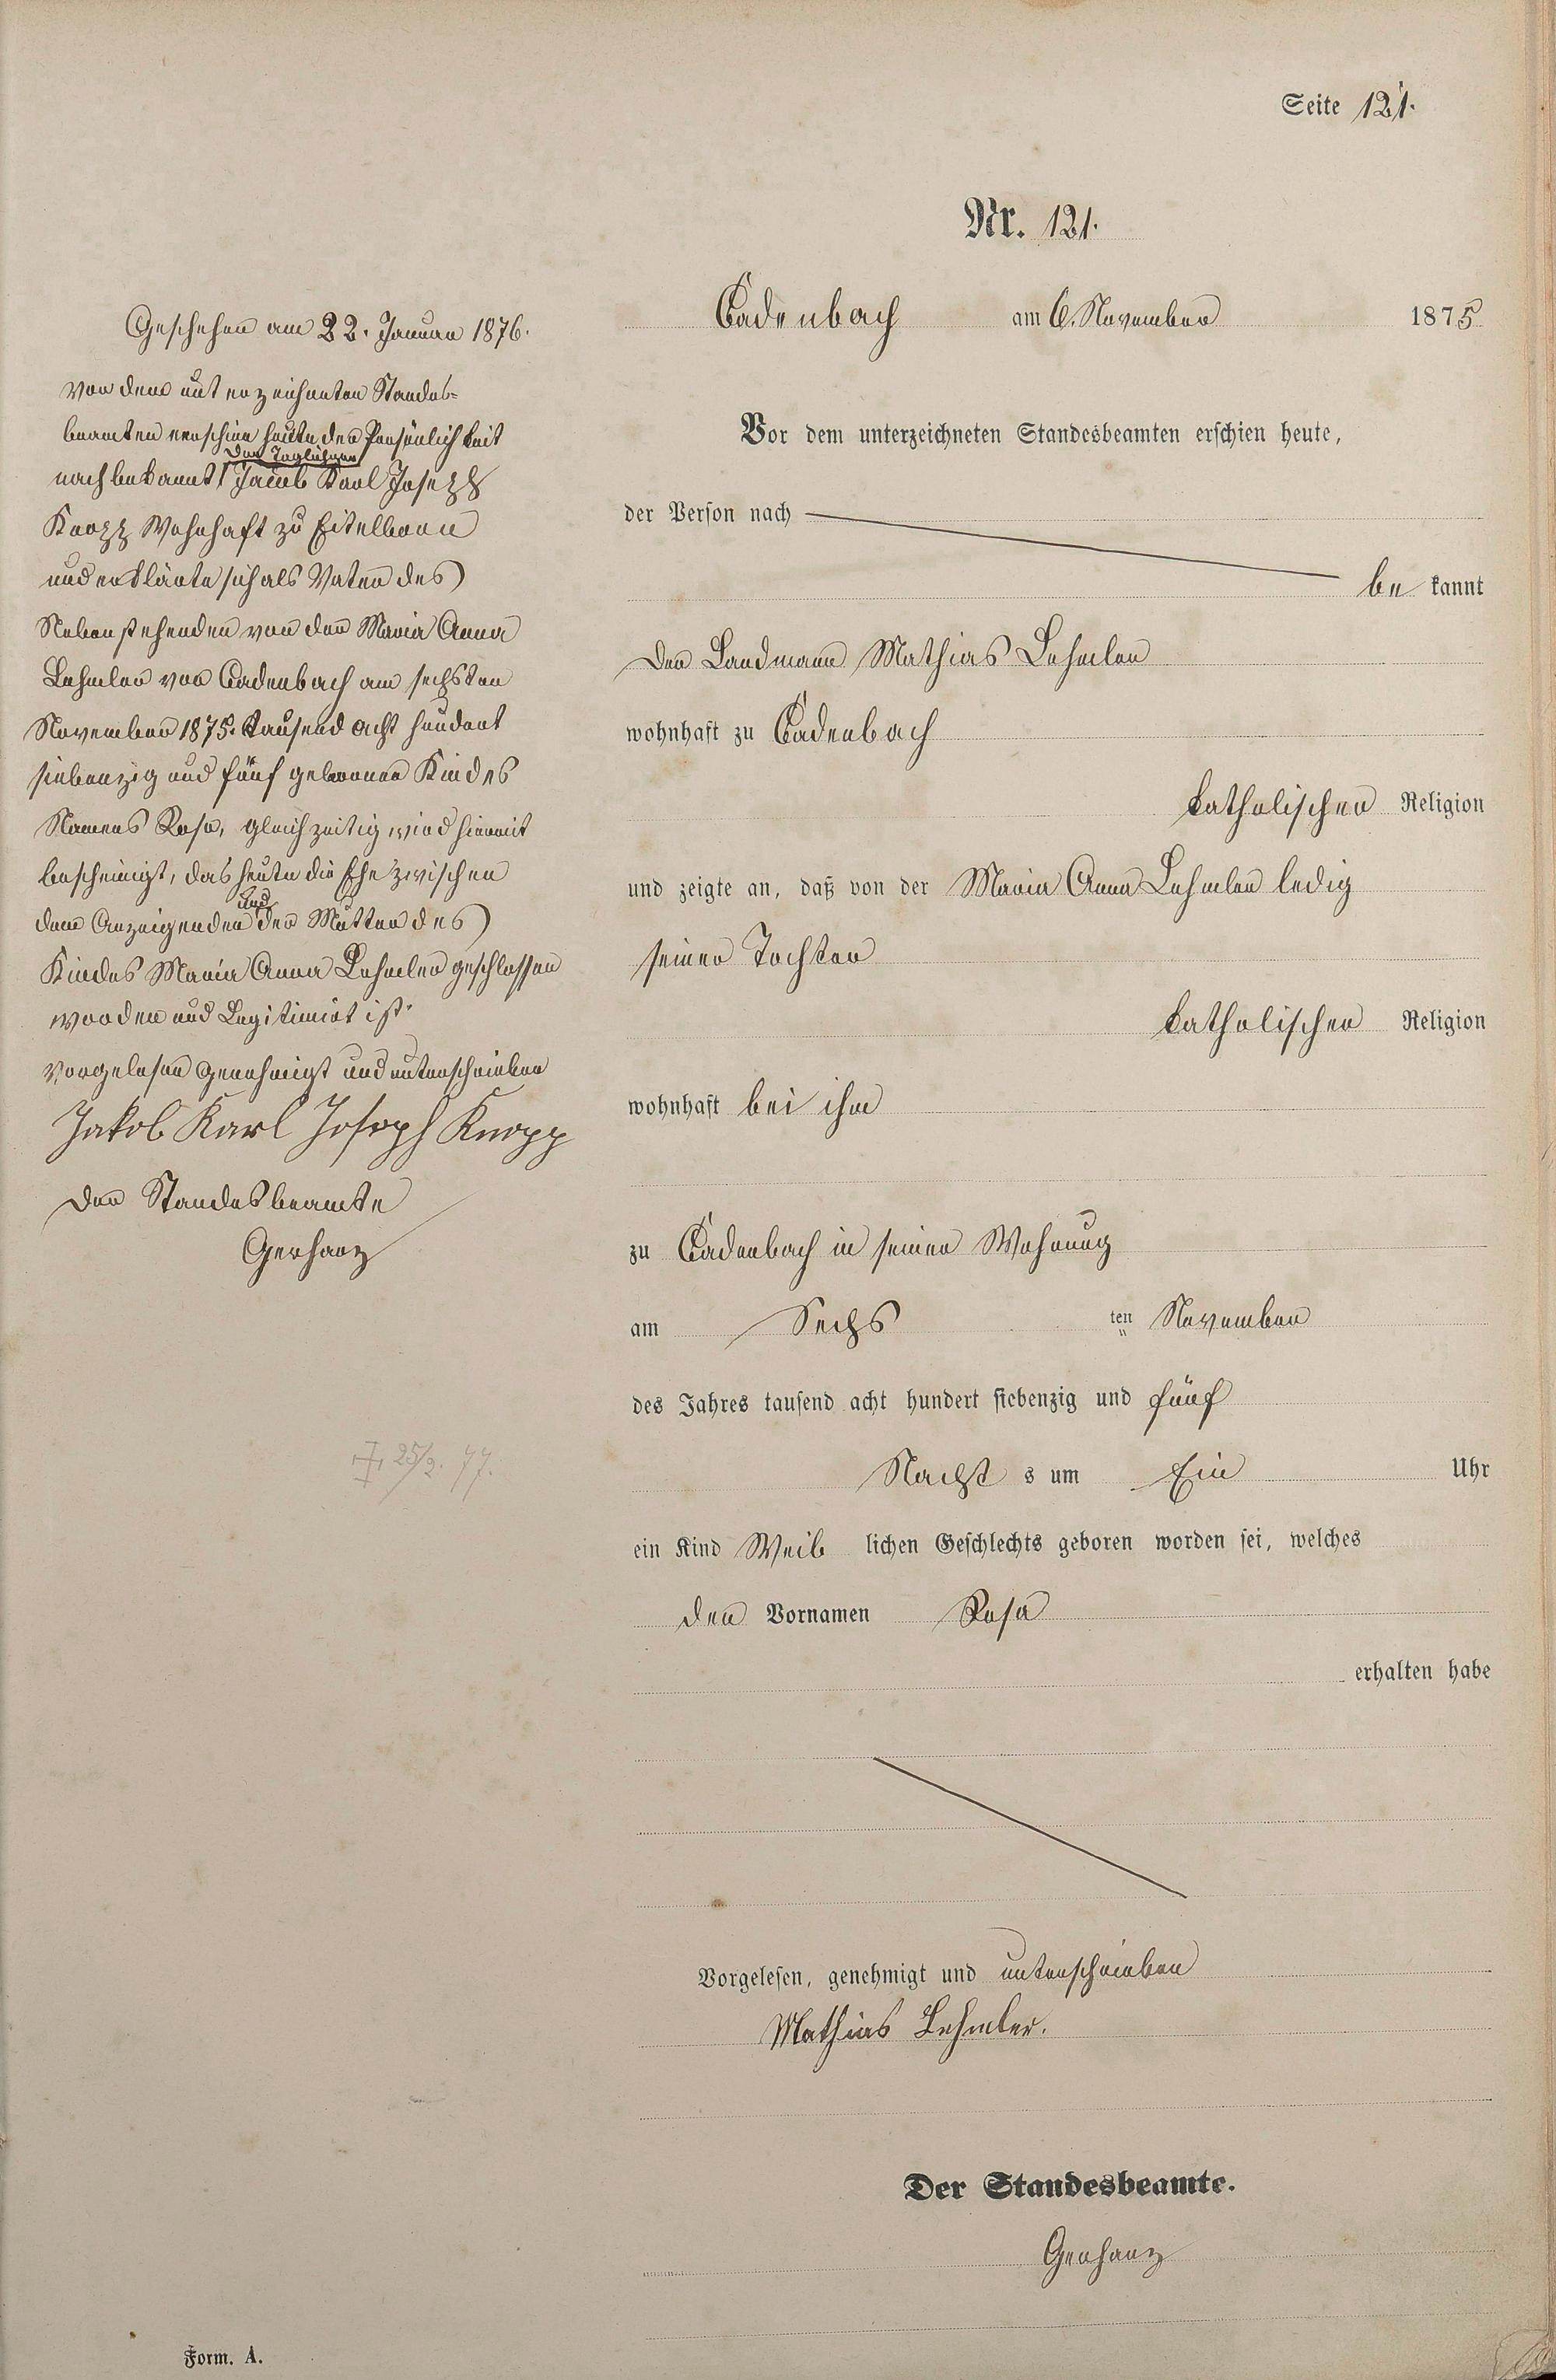 Seite 121.
Nr. 121.
Cadenbach am 6. November 1875
Vor dem unterzeichneten Standesbeamten erschien heute,
der Person nach
be kannt
der Landmann Mathias Lehmler
wohnhaft zu Cadenbach
katholischer Religion
und zeigte an, daß von der Maria Anna Lehmler ledig
seiner Tochter
katholischer Religion
wohnhaft bei ihm
zu Cadenbach in seiner Wohnung
am Sechs ten November
des Jahres tausend acht hundert siebenzig und fünf
Nacht s um Ein Uhr
ein Kind Weib lichen Geschlechts geboren worden sei, welches
den Vornamen Rosa
erhalten habe
Vorgelesen, genehmigt und unterschrieben
Mathias Lehmler.
Der Standesbeamte.
Gerharz
Geschehen am 22. Januar 1876.
Vor dem unterzeichneten Standes=
beamten erschien heute der Persönlichkeit
der Taglöhner
nach bekannt Jacob Karl Joseph
Knopp Wohnhaft zu Eitelborn
und erklärte sich als Vater des
Nebenstehenden von der Maria Anna
Lehmler von Cadenbach am sechsten
November 1875. tausend acht hundert
siebenzig und fünf geborenen Kindes
Namens Rosa, gleichzeitig wird hiermit
bescheinigt, das heute die Ehe zwischen
und
dem Anzeigenden der Mutter des
Kindes Maria Anna Lehmler geschlossen
worden und Legitimirt ist.
Vorgelesen genehmigt und unterschrieben
Jakob Karl Joseph Knopp
Der Standesbeamte
Gerharz
† 25/2. 77.
Form. A.